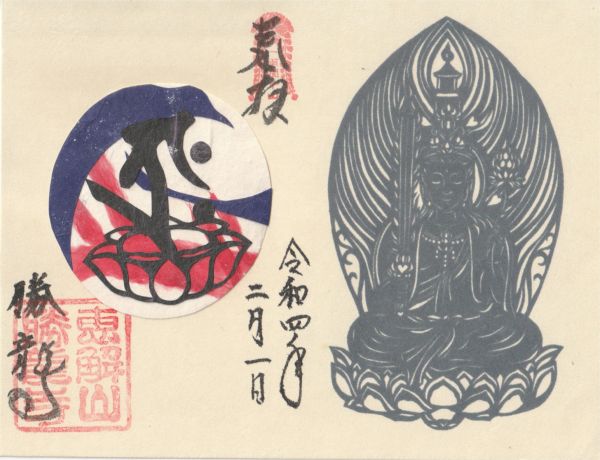 奉拝
令和四年
二月一日
勝龍寺
恵解山
勝龍寺